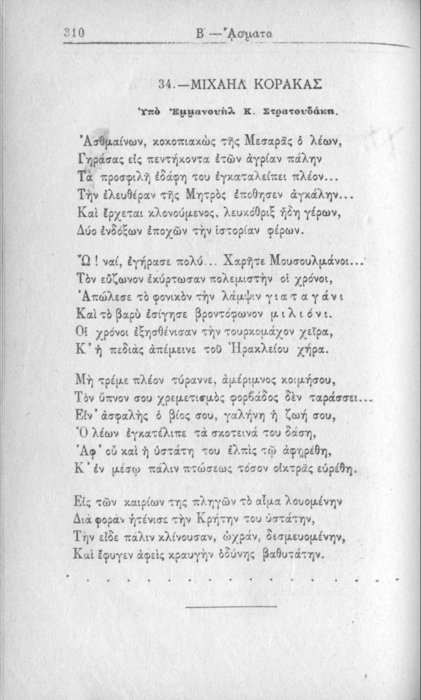 310
Β — ᾌσματα
34.—ΜΙΧΑΗΛ ΚΟΡΑΚΑΣ
Ὑπὸ Ἐμμανουὴλ Κ. Στρατουδάκη.
Ἀσθμαίνων, κοκοπιακὼς τῆς Μεσαρᾶς ὁ λέων,
Γηράσας εἰς πεντήκοντα ἐτῶν ἀγρίαν πάλην
Τὰ προσφιλῆ ἐδάφη του ἐγκαταλείπει πλέον...
Τὴν ἐλευθέραν τῆς Μητρὸς ἐπόθησεν ἀγκάλην...
Καὶ ἔρχεται κλονούμενος, λευκόθριξ ἤδη γέρων,
Δύο ἐνδόξων ἐποχῶν τὴν ἱστορίαν φέρων.
Ὦ ! ναί, ἐγήρασε πολύ... Χαρῆτε Μουσουλμάνοι...
Τὸν εὔζωνον ἐκύρτωσαν πολεμιστὴν οἱ χρόνοι,
Ἀπώλεσε τὸ φονικὸν τὴν λάμψιν γιαταγάνι
Καὶ τὸ βαρὺ ἐσίγησε βροντόφωνον μιλιόνι.
Οἱ χρόνοι ἐξησθένισαν τὴν τουρκομάχον χεῖρα,
Κ' ἡ πεδιὰς ἀπέμεινε τοῦ Ἡρακλείου χήρα.
Μὴ τρέμε πλέον τύραννε, ἀμέριμνος κοιμήσου,
Τὸν ὕπνον σου χρεμετισμὸς φορβάδος δὲν ταράσσει...
Εἶν' ἀσφαλὴς ὁ βίος σου, γαλήνη ἡ ζωή σου,
Ὁ λέων ἐγκατέλιπε τὰ σκοτεινά του δάση,
Ἀφ' οὗ καὶ ἡ ὑστάτη του ἐλπὶς τῷ ἀφῃρέθη,
Κ' ἐν μέσῳ πάλιν πτώσεως τόσον οἰκτρᾶς εὑρέθη.
Εἰς τῶν καιρίων της πληγῶν τὸ αἷμα λουομένην
Διὰ φορὰν ἠτένισε τὴν Κρήτην του ὑστάτην,
Τὴν εἶδε πάλιν κλίνουσαν, ὠχράν, δεσμευομένην,
Καὶ ἔφυγεν ἀφεὶς κραυγὴν ὀδύνης βαθυτάτην.
. . . . . . . . . . . . . . . . . .